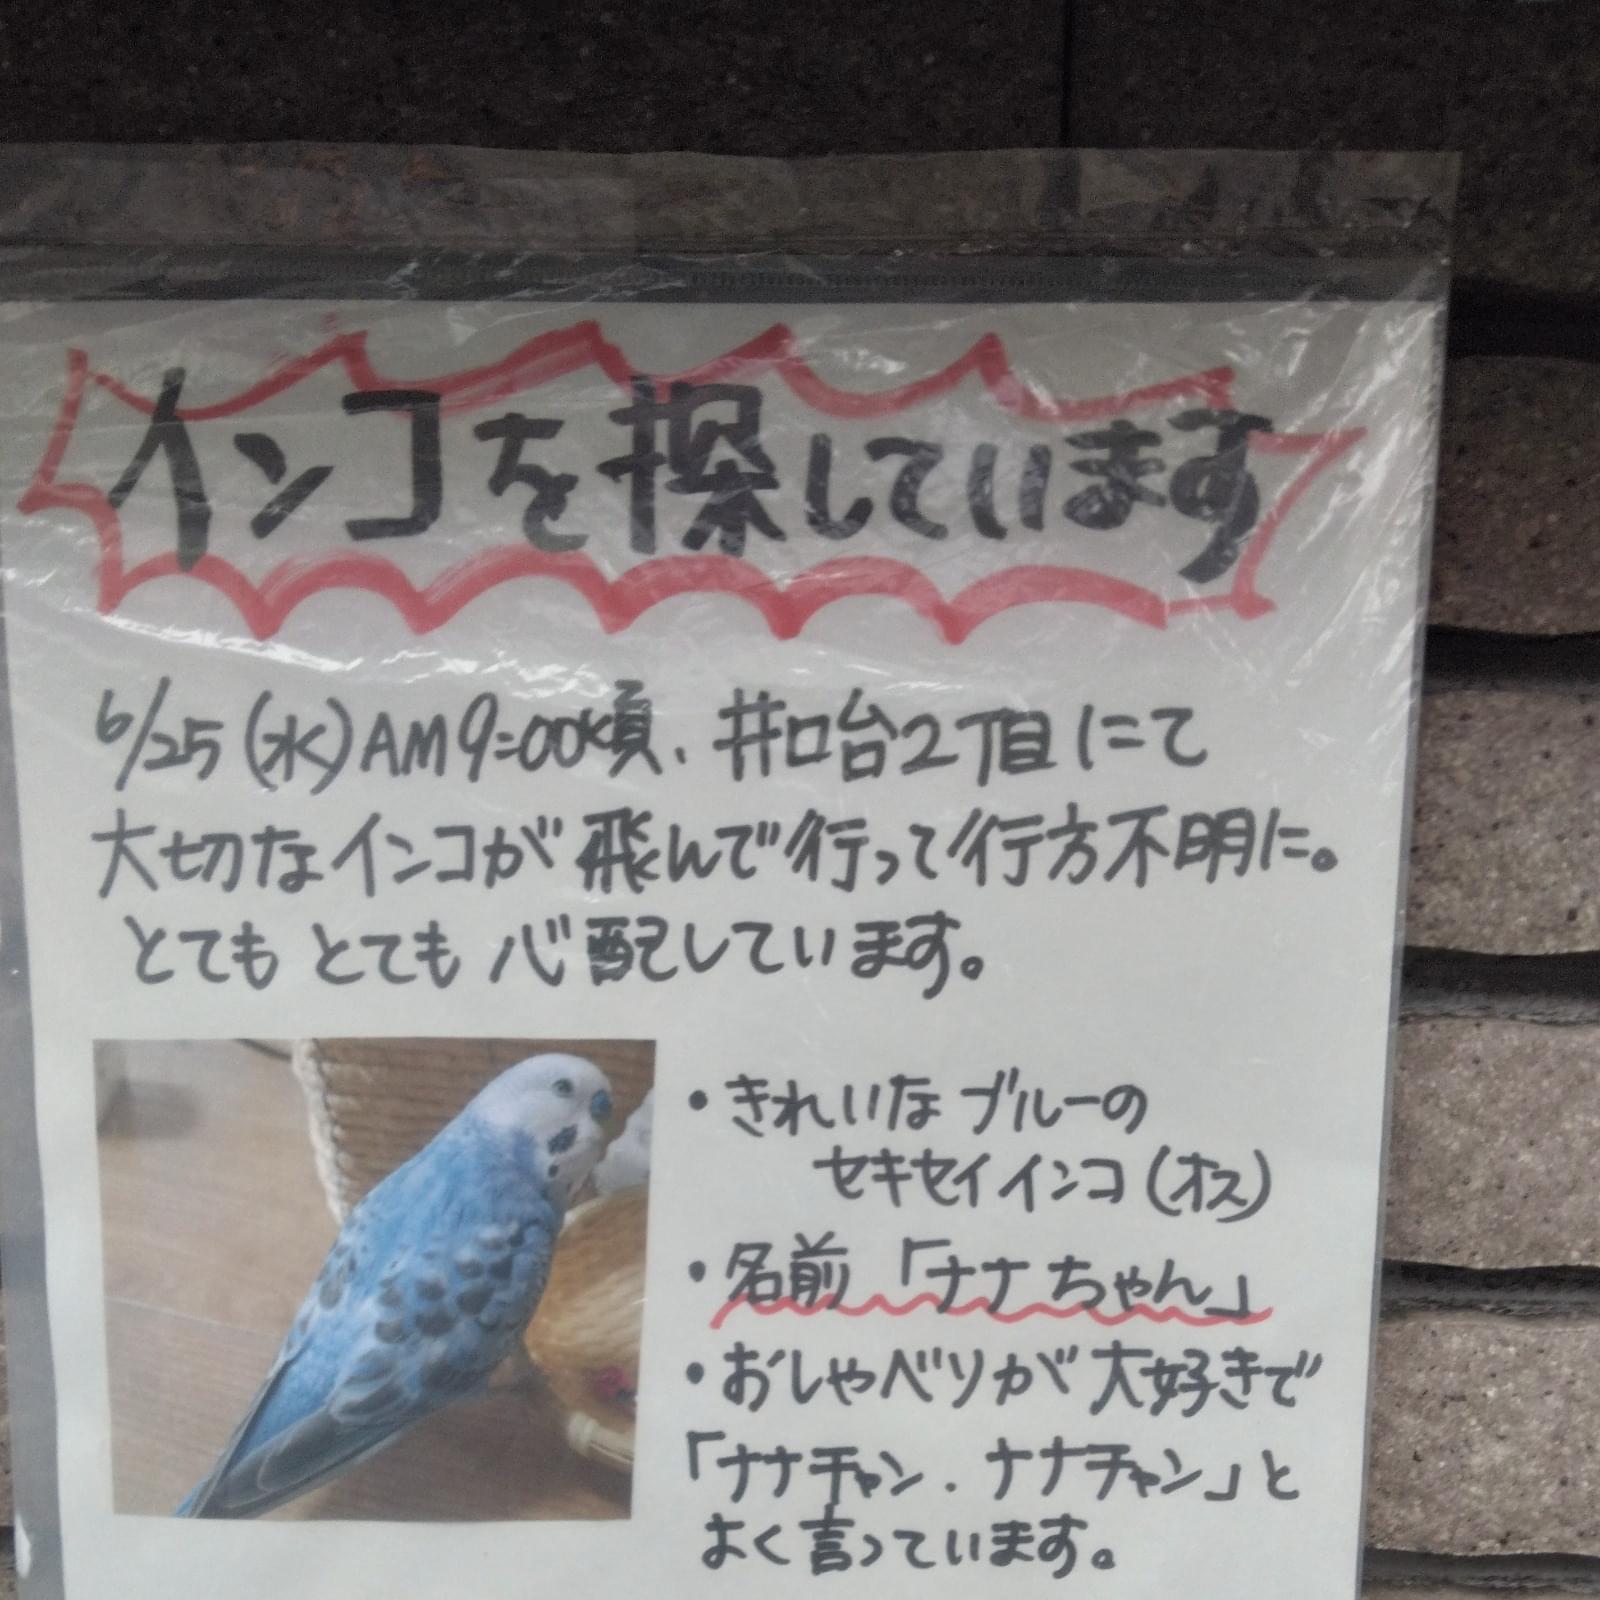 インコを探しています
6/25(水)AM9:00頃、井口台2丁目にて
大切なインコが飛んで行って行方不明に。
とてもとても心配しています。
・きれいなブルーの
セキセイインコ(オス)
・名前「ナナちゃん」
・おしゃべりが大好きで
「ナナチャン.ナナチャン」と
よく言っています。